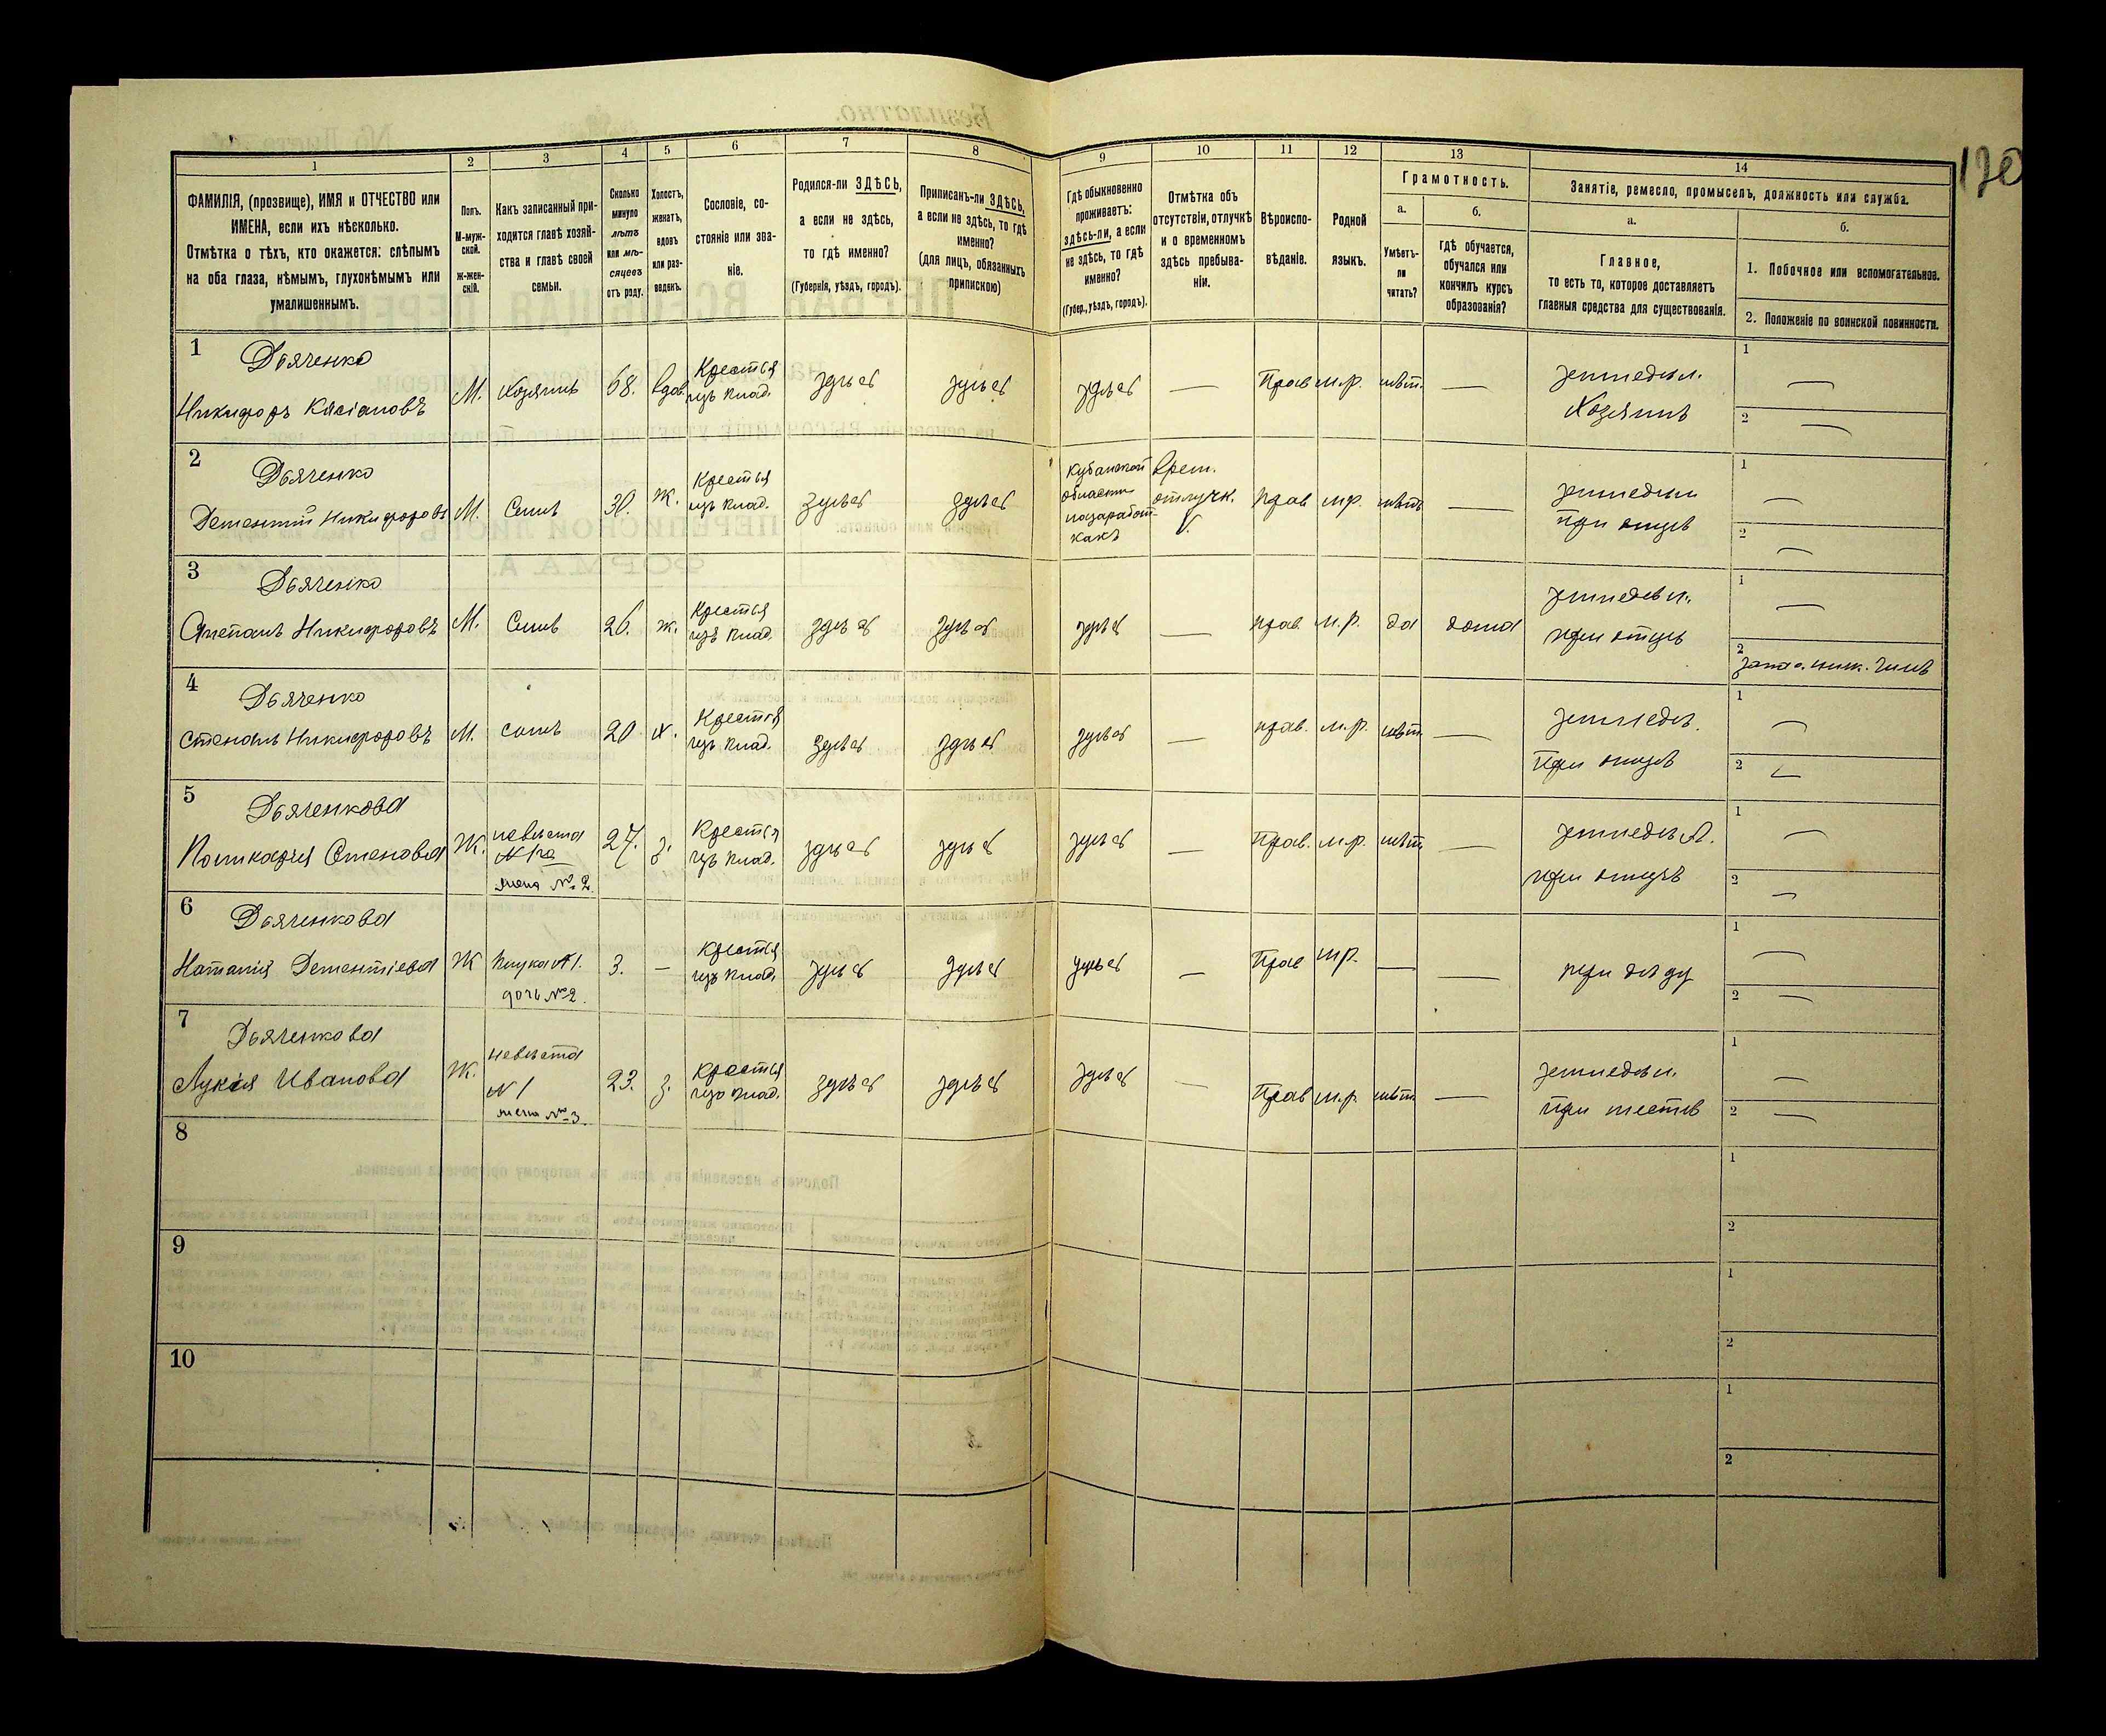 170
1 2 3 4 5 6 7 8 9 10 11 12 13 14
ФАМИЛІЯ, (прозвище), ИМЯ и ОТЧЕСТВО или
ИМЕНА, если ихъ нѣсколько.
Отмѣтка о тѣхъ, кто окажется: слѣпымъ
на оба глаза, нѣмымъ, глухонѣмымъ или
умалишеннымъ.
Полъ.
М-муж-
ской.
ж-жен-
скій.
Какъ записанный при-
ходится главѣ хозяй-
ства и главѣ своей
семьи.
Сколько
минуло
лѣтъ
или мѣ-
сяцевъ
отъ роду.
Холостъ,
женатъ,
вдовъ
или раз-
веденъ.
Сословіе, со-
стояніе или зва-
ніе.
Родился-ли ЗДѢСЬ,
а если не здѣсь,
то гдѣ именно?
(Губернія, уѣздъ, городъ).
Приписанъ-ли ЗДѢСЬ,
а если не здѣсь, то гдѣ
именно?
(для лицъ, обязанныхъ
припискою)
Гдѣ обыкновенно
проживаетъ:
здѣсь-ли, а если
не здѣсь, то гдѣ
именно?
(Губер., уѣздъ, городъ).
Отмѣтка объ
отсутствіи, отлучкѣ
и о временномъ
здѣсь пребыва-
ніи.
Вѣроиспо-
вѣданіе.
Родной
языкъ.
Грамотность.
а.
Умѣетъ-
ли
читать?
б.
гдѣ обучается,
обучался или
кончилъ курсъ
образованія?
Занятіе, ремесло, промыселъ, должность или служба.
а.
Главное,
то есть то, которое доставляетъ
главныя средства для существованія.
б.
1. Побочное или вспомогательное.
2. Положеніе по воинской повинности.
1 Дьяченко
Никифоръ Касіановъ
М. Хозяинъ 68. вдов. Крестья изъ влад. здѣсь здѣсь здѣсь — Прав м.р. нѣт. — землед.
Хозяинъ
1 —
2 —
2 Дьяченко
Дементій Никифоровъ
М. Сынъ 30. ж. Крестья изъ влад. здѣсь здѣсь
Кубанской
области
на заработ-
кахъ
врем.
отлучк.
V.
прав м.р. нѣтъ — землед.
при отцѣ
1 —
2 —
3 Дьяченко
Степанъ Никифоровъ
М. Сынъ 26. ж. Крестья изъ влад. здѣсь здѣсь здѣсь — прав. м.р. да дома землед.
при отцѣ
1 —
2 ниж. чинъ
4 Дьяченко
Степанъ Никифоровъ
М. сынъ 20 х. Крестья изъ влад. здѣсь здѣсь здѣсь — прав. м.р. нѣт. — землед.
При отцѣ
1 —
2 —
5 Дьяченкова
Поликарпія Степанова
Ж. невѣста
№ 1го
жена № 2.
27. з. Крестья изъ влад. здѣсь здѣсь здѣсь — Прав. м.р. нѣт. — землед.
при отцѣ
1 —
2 —
6 Дьяченкова
Наталія Дементіева
Ж Внука № 1.
дочь № 2.
3. — Крестья изъ влад. здѣсь здѣсь здѣсь — Прав м.р. — — при дѣду
1 —
2 —
7 Дьяченкова
Лукія Иванова
Ж. невѣста
№ 1
жена № 3.
23. з. Крестья изъ влад. здѣсь здѣсь здѣсь — Прав м.р. нѣт. — землед.
при тестѣ
1 —
2 —
8
1
2
9
1
2
10
1
2